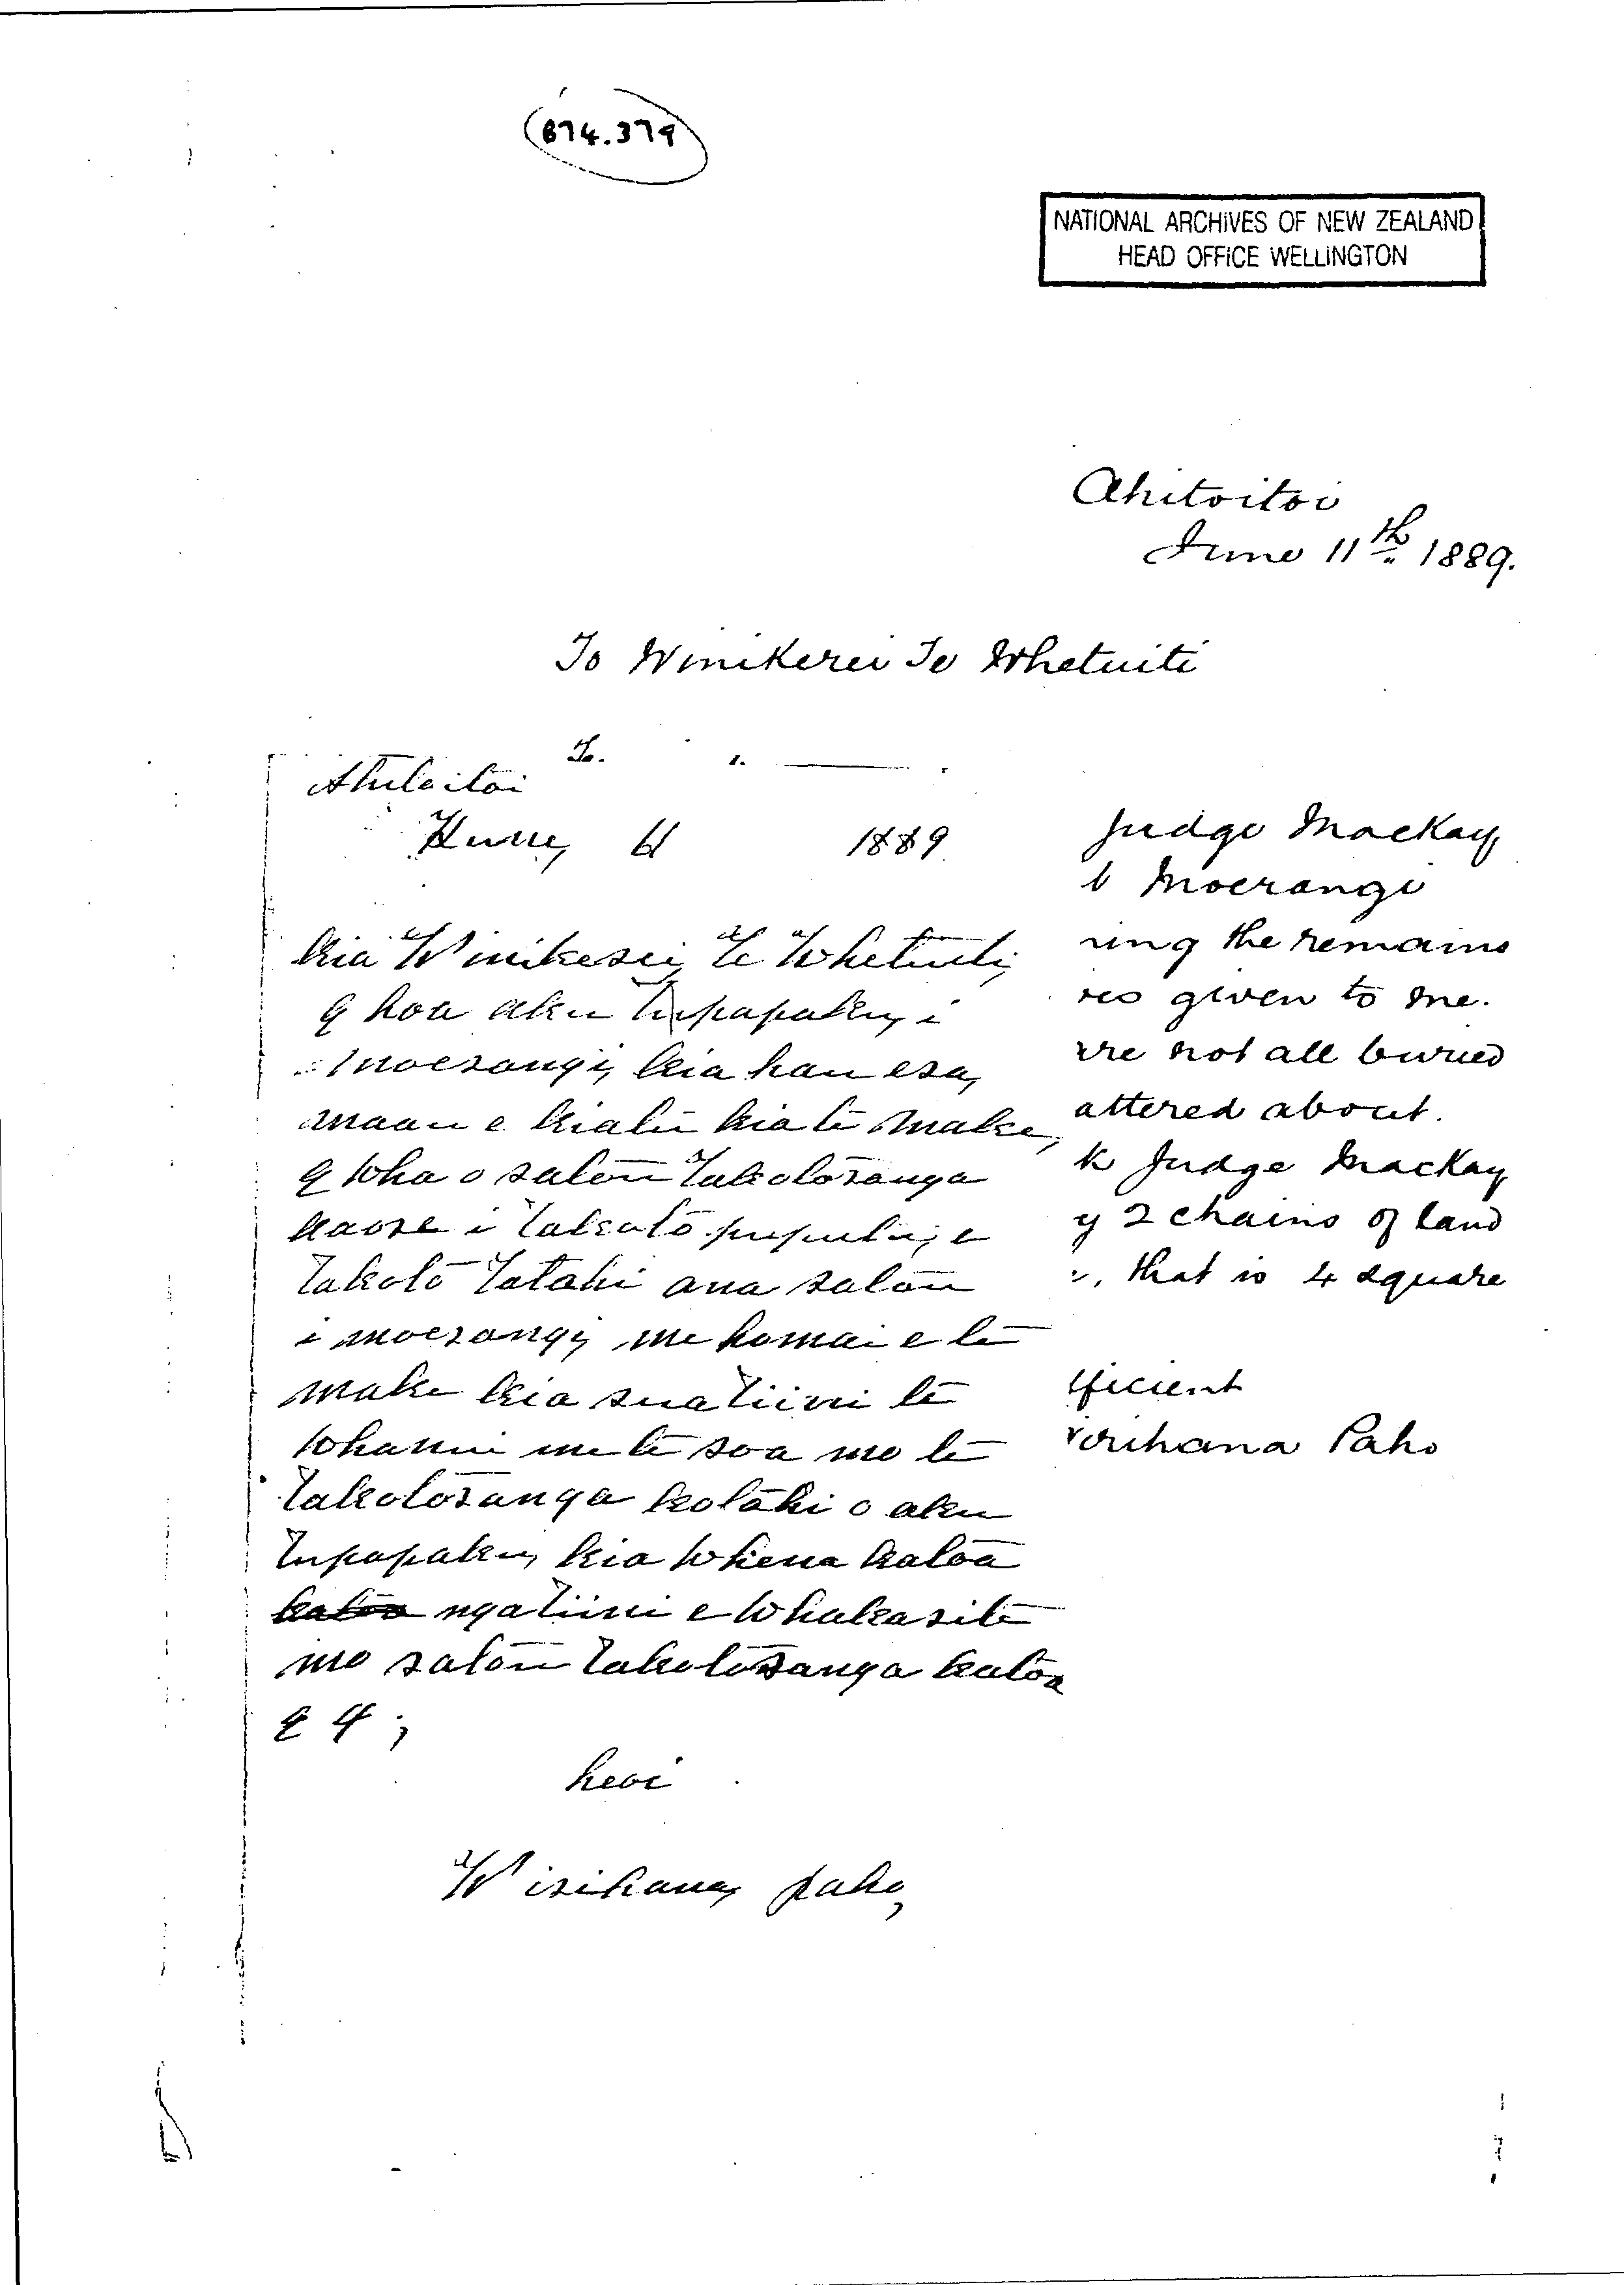 874.379
NATIONAL ARCHIVES OF NEW ZEALAND
HEAD OFFICE WELLINGTON
Ahitoitoi
June 11th 1889.
To Winikerei Te Whetuiti
To.
Ahitoitoi
Hune, 11 1889
Kia Winikerei Te Whetuiti,
E hoa aku Tupapaku, i
Moerangi, kia hau era,
maau e kiatu kia te Make,
E Wha o ratou Takotoranga
kaore i Takoto puputu, e
Takoto Tatahi ana ratou
i moerangi, me homai e te
make kia rua tiini te
Whanui me te roa mo te
Takotoranga kotahi o aku
Tupapaku, kia whena katoa
katoa nga tiini e Whakarite
mo ratou Takotoranga katoa
E 4,
heoi
Wirihana, paho,
Judge Mackay
Moerangi
ring the remains
res given to me.
re not all buried
attered about.
k Judge Mackay
y 2 chains of land
, that is 4 square
fficient
Virihana Paho